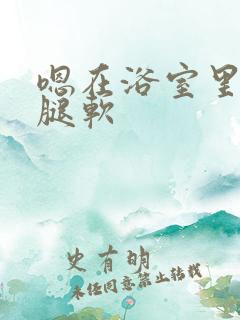 嗯在浴室里
腿软
史有明
未经同意禁止转载